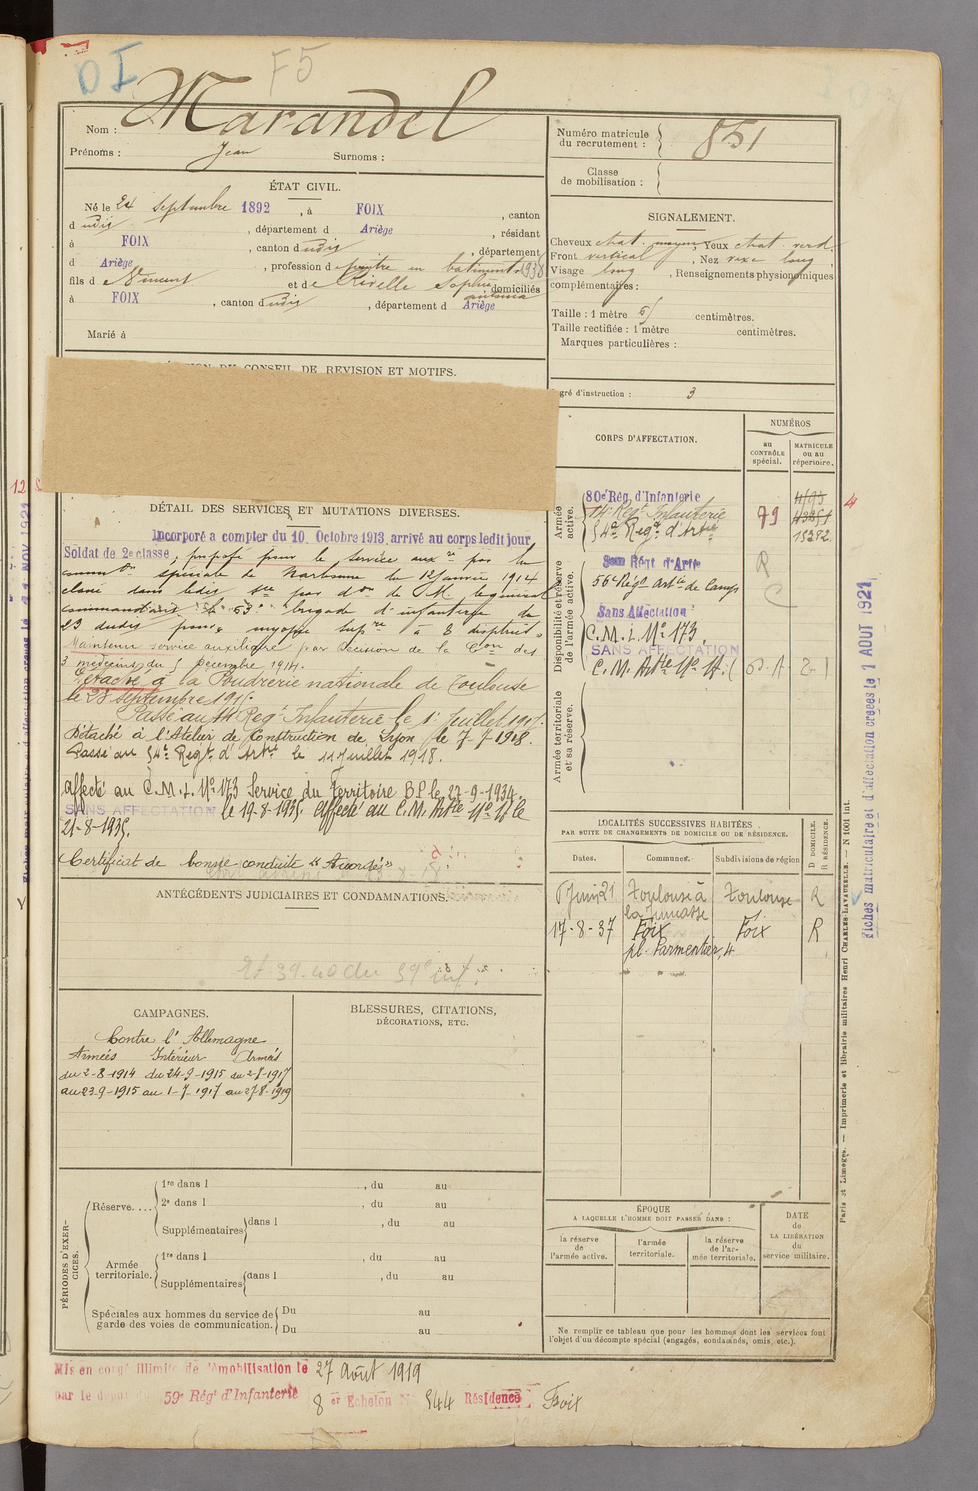 DI F5
Nom : Marandel
Prénoms : Jean Surnoms :
Numéro matricule du recrutement : 851
Classe de mobilisation :
ÉTAT CIVIL.
Né le 24 septembre 1892, à FOIX, canton
dudit, département d Ariège, résidant
à FOIX, canton dudit, département
d Ariège, profession de peintre en batiments (1938
fils de Vincent et de Rivelle Sophie antonia domiciliés
à FOIX, canton dudit, département d Ariège
Marié à
SIGNALEMENT.
Cheveux chat. moyen, Yeux chat. verd.
Front vertical, Nez vexe long,
Visage long, Renseignements physionomiques
complémentaires :
Taille : 1 mètre 61 centimètres.
Taille rectifiée : 1 mètre centimètres.
Marques particulières :
gré d'instruction : 3
DU CONSEIL DE REVISION ET MOTIFS.
DÉTAIL DES SERVICES ET MUTATIONS DIVERSES.
Incorporé a compter du 10 Octobre 1913, arrivé au corps ledit jour
Soldat de 2e classe, proposé pour le service auxre par la
comm on spéciale de Narbonne le 12 Janvier 1914
classé dans ledit sce par don de M. le général
commandant la 63e brigade d'infanterie du
23 dudit pour myopie supre à 8 dioptries
Maintenu service auxiliaire par décision de la Con des
3 médecins du 5 Decembre 1914.
Détaché à la Poudrerie nationale de Toulouse
le 23 septembre 1915.
Passé au 14e Regt Infanterie le 1r Juillet 1917.
Détaché à l'Atelier de Construction de Lyon le 7-7-1918.
Passé au 54e Regt d'Artie le 11 Juillet 1918.
Affecté au C.M.I. No 173 Service du Territoire B.P. le 27-9-1934.
SANS AFFECTATION le 19-8-1935. Affecté au C.M. Artie No 17 le
21-8-1935.
Certificat de bonne conduite "Accordé"
CORPS D'AFFECTATION.
NUMÉROS
au CONTRÔLE spécial.
MATRICULE ou au répertoire.
Armée active.
80e Rég. d'Infanterie
14e Regt Infanterie
54e Regt d'Artie
79
15272
Disponibilité et réserve de l'armée active.
Régt d'Artie
56e Régt Artie de Camp
Sans Affectation
C.M.I. No 173.
SANS AFFECTATION
C.M. Artie No 17.
R
C
Armée territoriale et sa réserve.
ANTÉCÉDENTS JUDICIAIRES ET CONDAMNATIONS.
CAMPAGNES.
Contre l'Allemagne
Armées Intérieur Armées
du 2-8-1914 du 24-9-1915 du 2-7-1917
au 23-9-1915 au 1-7-1917 au 27-8-1919
BLESSURES, CITATIONS,
DÉCORATIONS, ETC.
LOCALITÉS SUCCESSIVES HABITÉES
PAR SUITE DE CHANGEMENTS DE DOMICILE OU DE RÉSIDENCE.
D DOMICILE. R RÉSIDENCE.
Dates. Communes. Subdivisions de région
6 Juin 21 Toulouse à Toulouse R
17-8-37 Foix Foix R
pl. Parmentier, 4
PÉRIODES D'EXERCICES.
Réserve....
1re dans l , du au
2e dans l , du au
Supplémentaires dans l , du au
Armée territoriale.
1re dans l , du au
Supplémentaires dans l , du au
Spéciales aux hommes du service de garde des voies de communication.
Du au
Du au
ÉPOQUE
A LAQUELLE L'HOMME DOIT PASSER DANS :
la réserve de l'armée active.
l'armée territoriale.
la réserve de l'armée territoriale.
DATE de LA LIBÉRATION du service militaire.
Ne remplir ce tableau que pour les hommes dont les services font
l'objet d'un décompte spécial (engagés, condamnés, omis, etc.).
Mis en congé illimité de démobilisation le 27 Août 1919
par le dépôt du 59e Régt d'Infanterie
8 er Echelon N 544 Résidence Foix
Fiches matriculaire et d'affectation créées le 1 AOUT 1921
Paris et Limoges. — Imprimerie et librairie militaires Henri CHARLES-LAVAUZELLE. — N 1001 int.